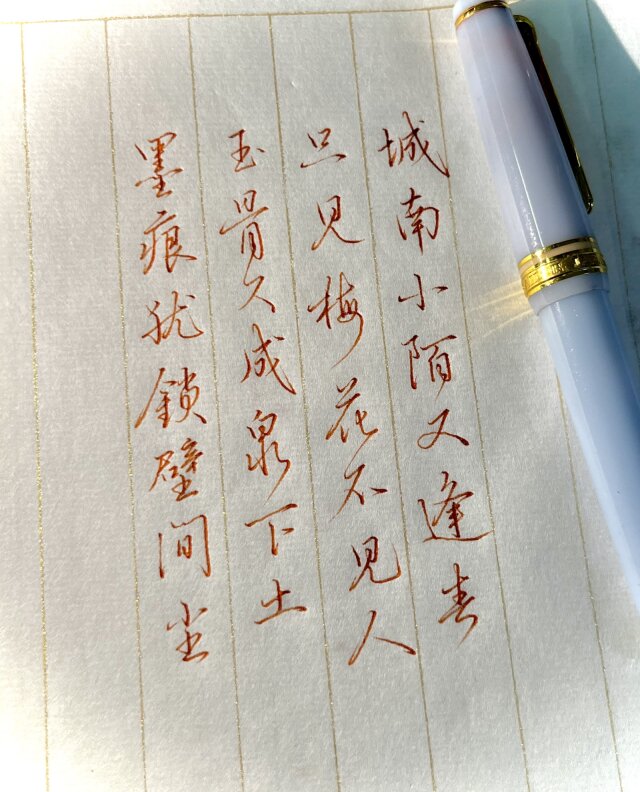 城南小陌又逢春
只见梅花不见人
玉骨久成泉下土
墨痕犹鎖壁间尘